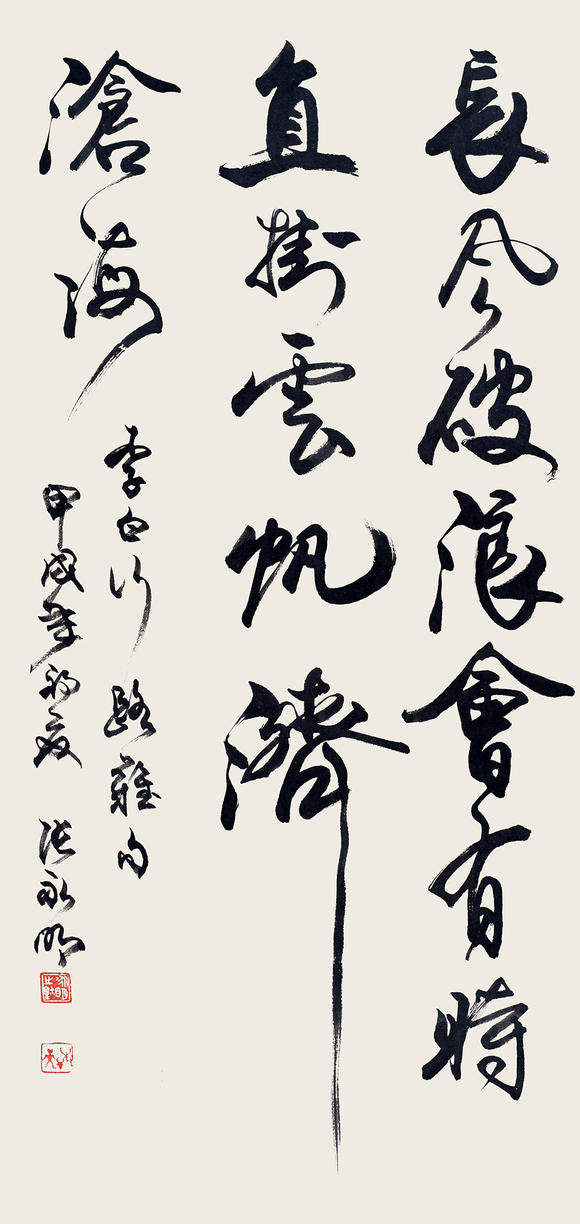 長風破浪會有時
直掛雲帆濟
滄海
李白行路難句
甲戌年初夏 張永明